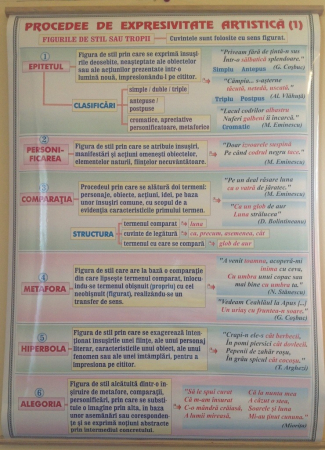 PROCEDEE DE EXPRESIVITATE ARTISTICĂ (1)
FIGURILE DE STIL SAU TROPII — Cuvintele sunt folosite cu sens figurat.
1
EPITETUL
Figura de stil prin care se exprimă însuşirile deosebite, neaşteptate ale obiectelor sau ale acţiunilor prezentate într-o lumină nouă, impresionându-l pe cititor.
CLASIFICĂRI
simple / duble / triple
antepuse / postpuse
cromatice, apreciative
personificatoare, metaforice
"Priveam fără de ţintă-n sus
Într-o sălbatică splendoare."
Simplu Antepus (G. Coşbuc)
"Câmpia... s-aşterne
tăcută, netedă, uscată."
Triplu Postpus (Al. Vlahuţă)
"Lacul codrilor albastru
Nuferi galbeni îl încarcă."
Cromatic (M. Eminescu)
2
PERSONI-
FICAREA
Figura de stil prin care se atribuie însuşiri, manifestări şi acţiuni omeneşti obiectelor, elementelor naturii, fiinţelor necuvântătoare.
"Doar izvoarele suspină
Pe când codrul negru tace."
(M. Eminescu)
3
COMPARAŢIA
Procedeul prin care se alătură doi termeni: personaje, obiecte, acţiuni, idei, pe baza unor însuşiri comune, cu scopul de a evidenţia caracteristicile primului termen.
STRUCTURA
termenul comparat
luna
cuvinte de legătură
ca, precum, asemenea, cât
termenul cu care se compară
glob de aur
"Pe un deal răsare luna
ca o vatră de jăratec."
(M. Eminescu)
"Ca un glob de aur
Luna strălucea"
(D. Bolintineanu)
4
METAFORA
Figura de stil care are la bază o comparaţie din care lipseşte termenul comparat, înlocuindu-se termenul obişnuit (propriu) cu cel neobişnuit (figurat), realizându-se un transfer de sens.
"A venit toamna, acoperă-mi
inima cu ceva,
Cu umbra unui copac sau
mai bine cu umbra ta."
(N. Stănescu)
"Vedeam Ceahlăul la Apus (...)
Un uriaş cu fruntea-n soare."
(G. Coşbuc)
5
HIPERBOLA
Figura de stil prin care se exagerează intenţionat însuşirile unei fiinţe, ale unui personaj literar, caracteristicile unui obiect, ale unui fenomen sau ale unei întâmplări, pentru a impresiona pe cititor.
"Crapi-n ele-s cât berbecii,
În pomi piersici cât dovlecii,
Pepenii de zahăr roşu,
În grâu spicul cât cocoşu."
(T. Arghezi)
6
ALEGORIA
Figura de stil alcătuită dintr-o înşiruire de metafore, comparaţii, personificări, prin care se substituie o imagine prin alta, în baza unor asemănări sau corespondenţe şi se exprimă noţiuni abstracte prin intermediul concretului.
"Să le spui curat
Că m-am însurat
C-o mândră crăiasă,
A lumii mireasă.
Că la nunta mea
A căzut o stea,
Soarele şi luna
Mi-au ţinut cununa."
(Mioriţa)